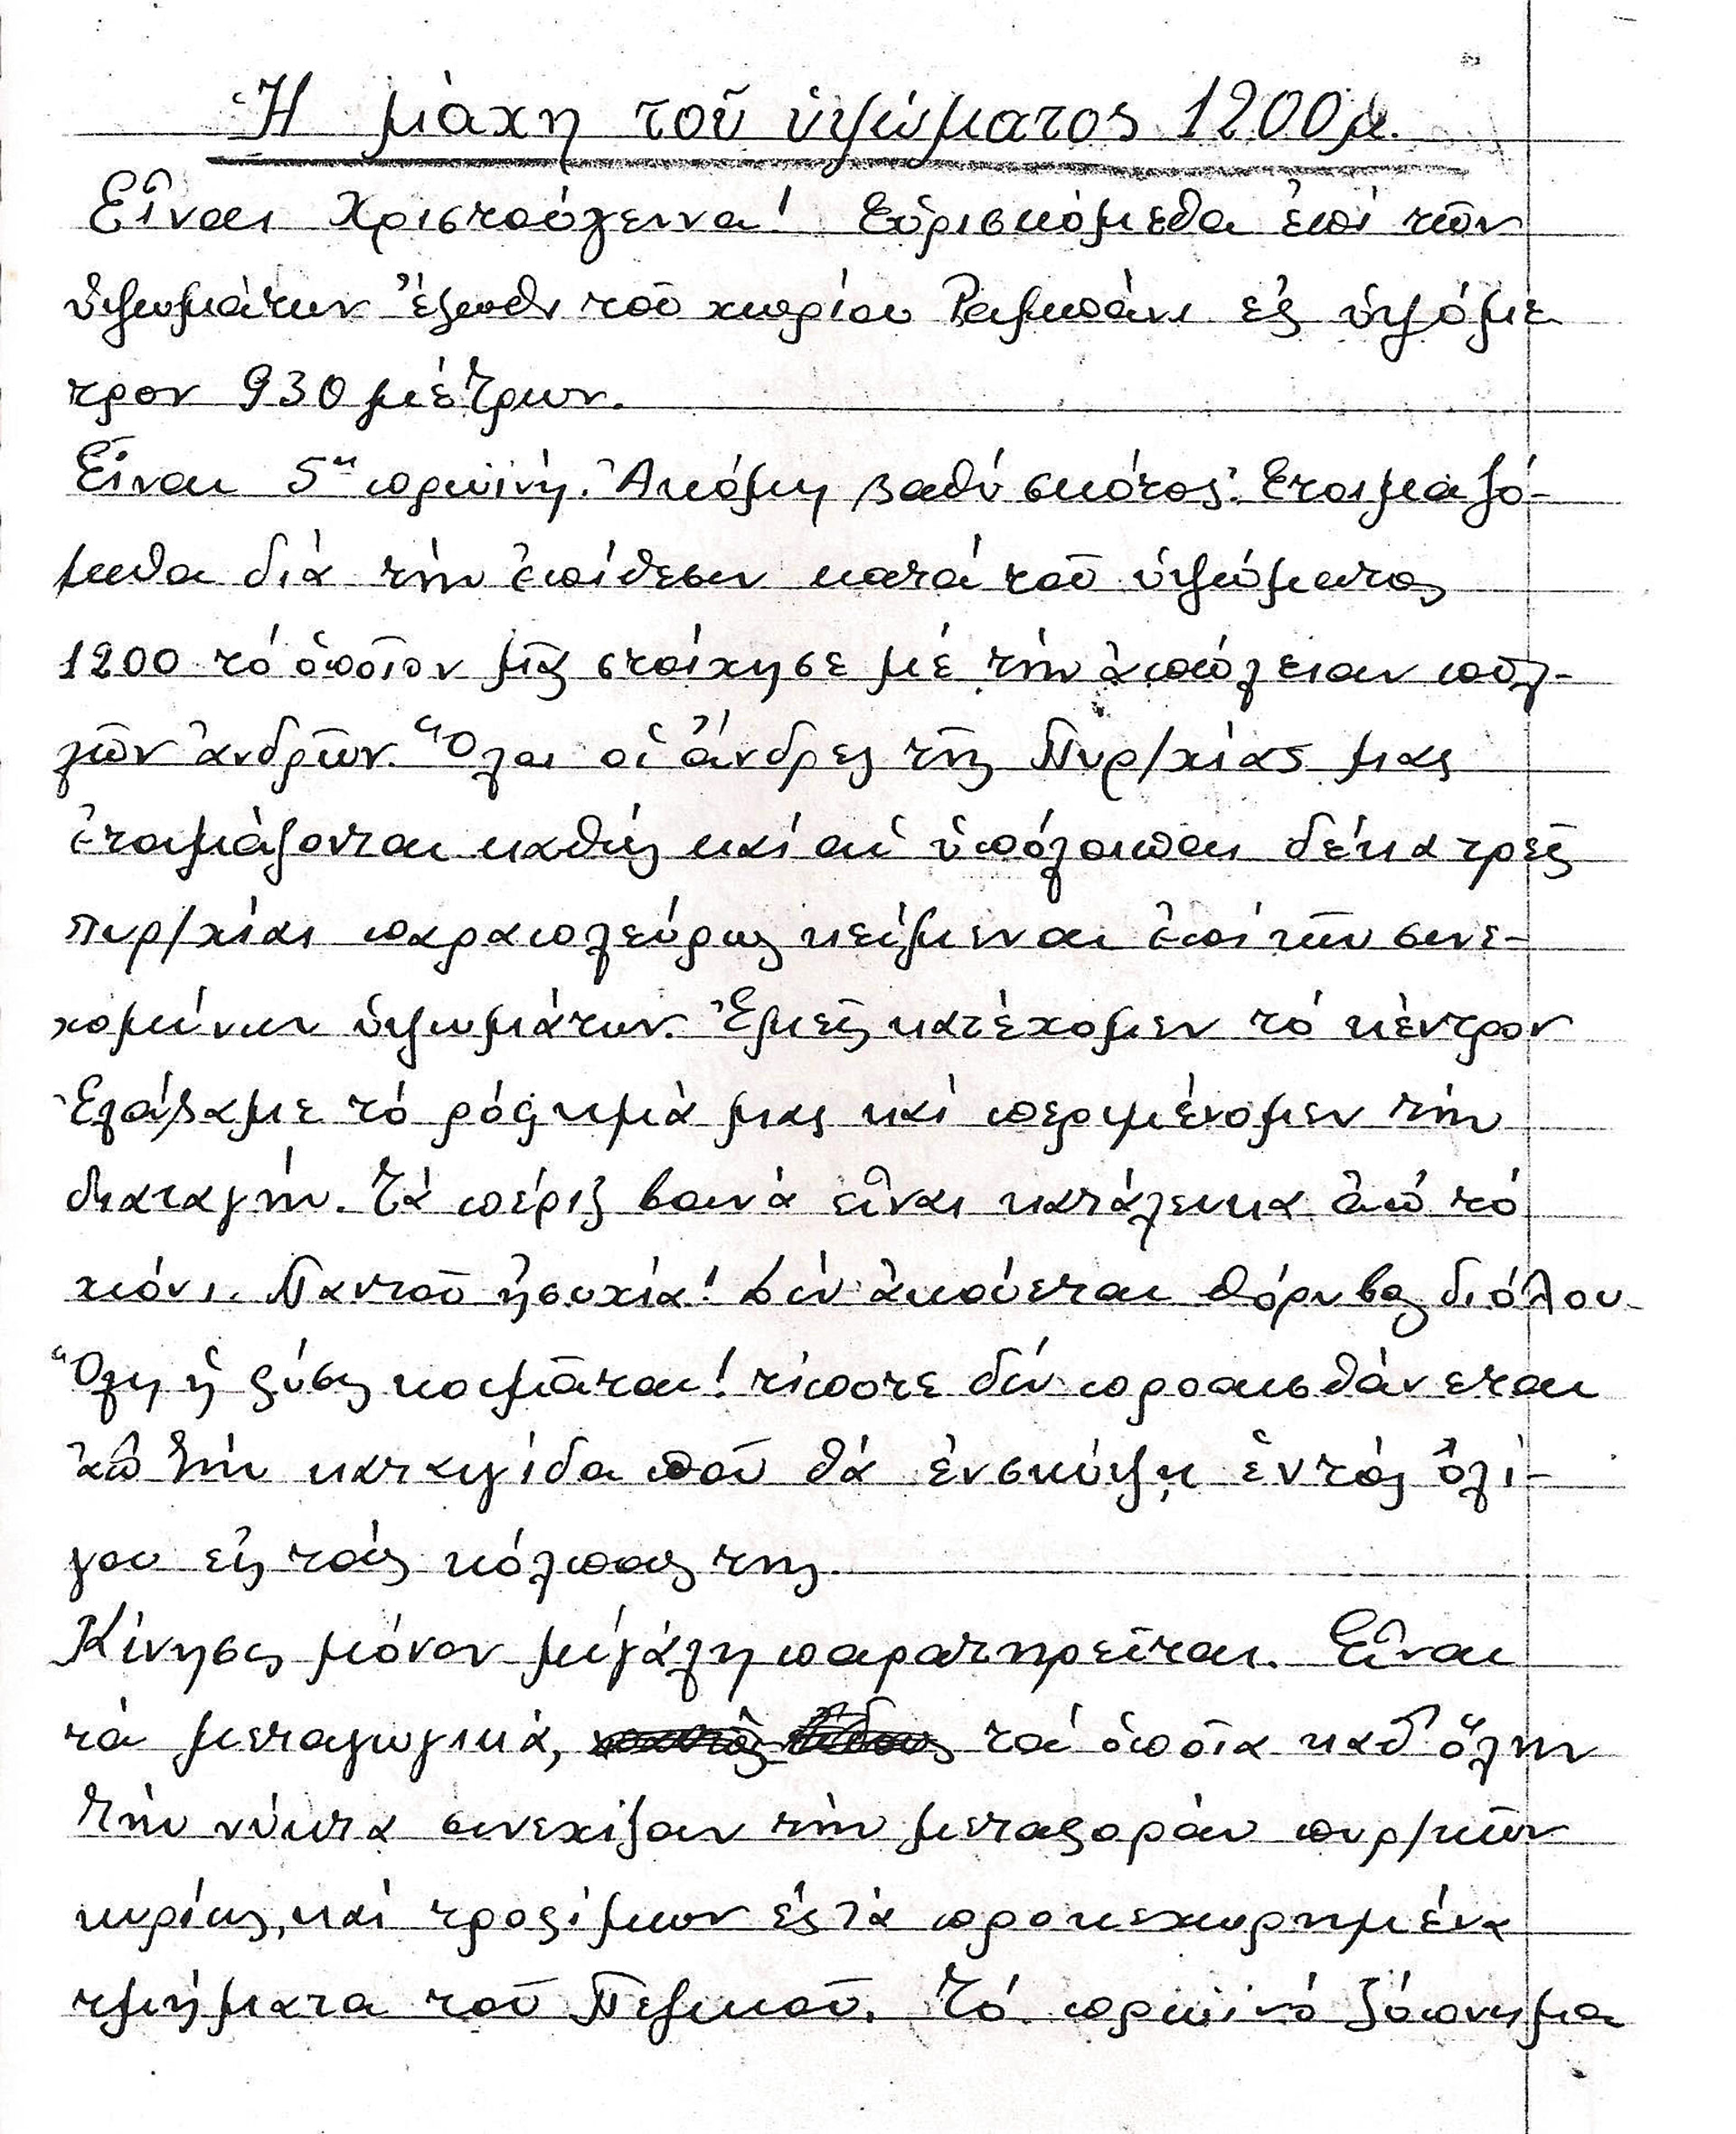 Ἡ μάχη τοῦ ὑψώματος 1200 μ.
Εἶναι Χριστούγεννα! Εὑρισκόμεθα ἐπί τῶν
ὑψωμάτων ἔξωθι τοῦ χωρίου Ραμπάνι εἰς ὑψόμε
τρον 930 μέτρων.
Εἶναι 5η πρωϊνή. Ἀκόμη βαθύ σκότος. Ἑτοιμαζό-
μεθα διά τήν ἐπίθεσιν κατά τοῦ ὑψώματος
1200 τό ὁποῖον μᾶς στοίχησε μέ τήν ἀπώλειαν πολ-
λῶν ἀνδρῶν. Ὅλοι οἱ ἄνδρες τῆς Πυρ/χίας μας
ἑτοιμάζονται καθώς καί αἱ ὑπόλοιπαι δέκα τρεῖς
πυρ/χίαι παραπλεύρως κείμεναι ἐπί τῶν συνε-
χομένων ὑψωμάτων. Ἐμεῖς κατέχομεν τό κέντρον
Ἐλάβαμε τό ρόφημά μας καί περιμένομεν τήν
διαταγήν. Τά πέριξ βουνά εἶναι κατάλευκα ἀπό τό
χιόνι. Παντοῦ ἡσυχία! Δέν ἀκούεται θόρυβος διόλου
Ὅλη ἡ φύσις κοιμᾶται! τίποτε δέν προαισθάνεται
ἀπό τήν καταιγίδα πού θά ἐνσκύψῃ ἐντός ὀλί-
γου εἰς τούς κόλπους της.
Κίνησις μόνον μεγάλη παρατηρεῖται. Εἶναι
τά μεταγωγικά, τά ὁποῖα καθ' ὅλην
τήν νύκτα συνεχίζαν τήν μεταφοράν πυρ/κῶν
κυρίως, καί τροφίμων εἰς τά προκεχωρημένα
τμήματα τοῦ Πεζικοῦ. Τό πρωϊνό ξύπνημα